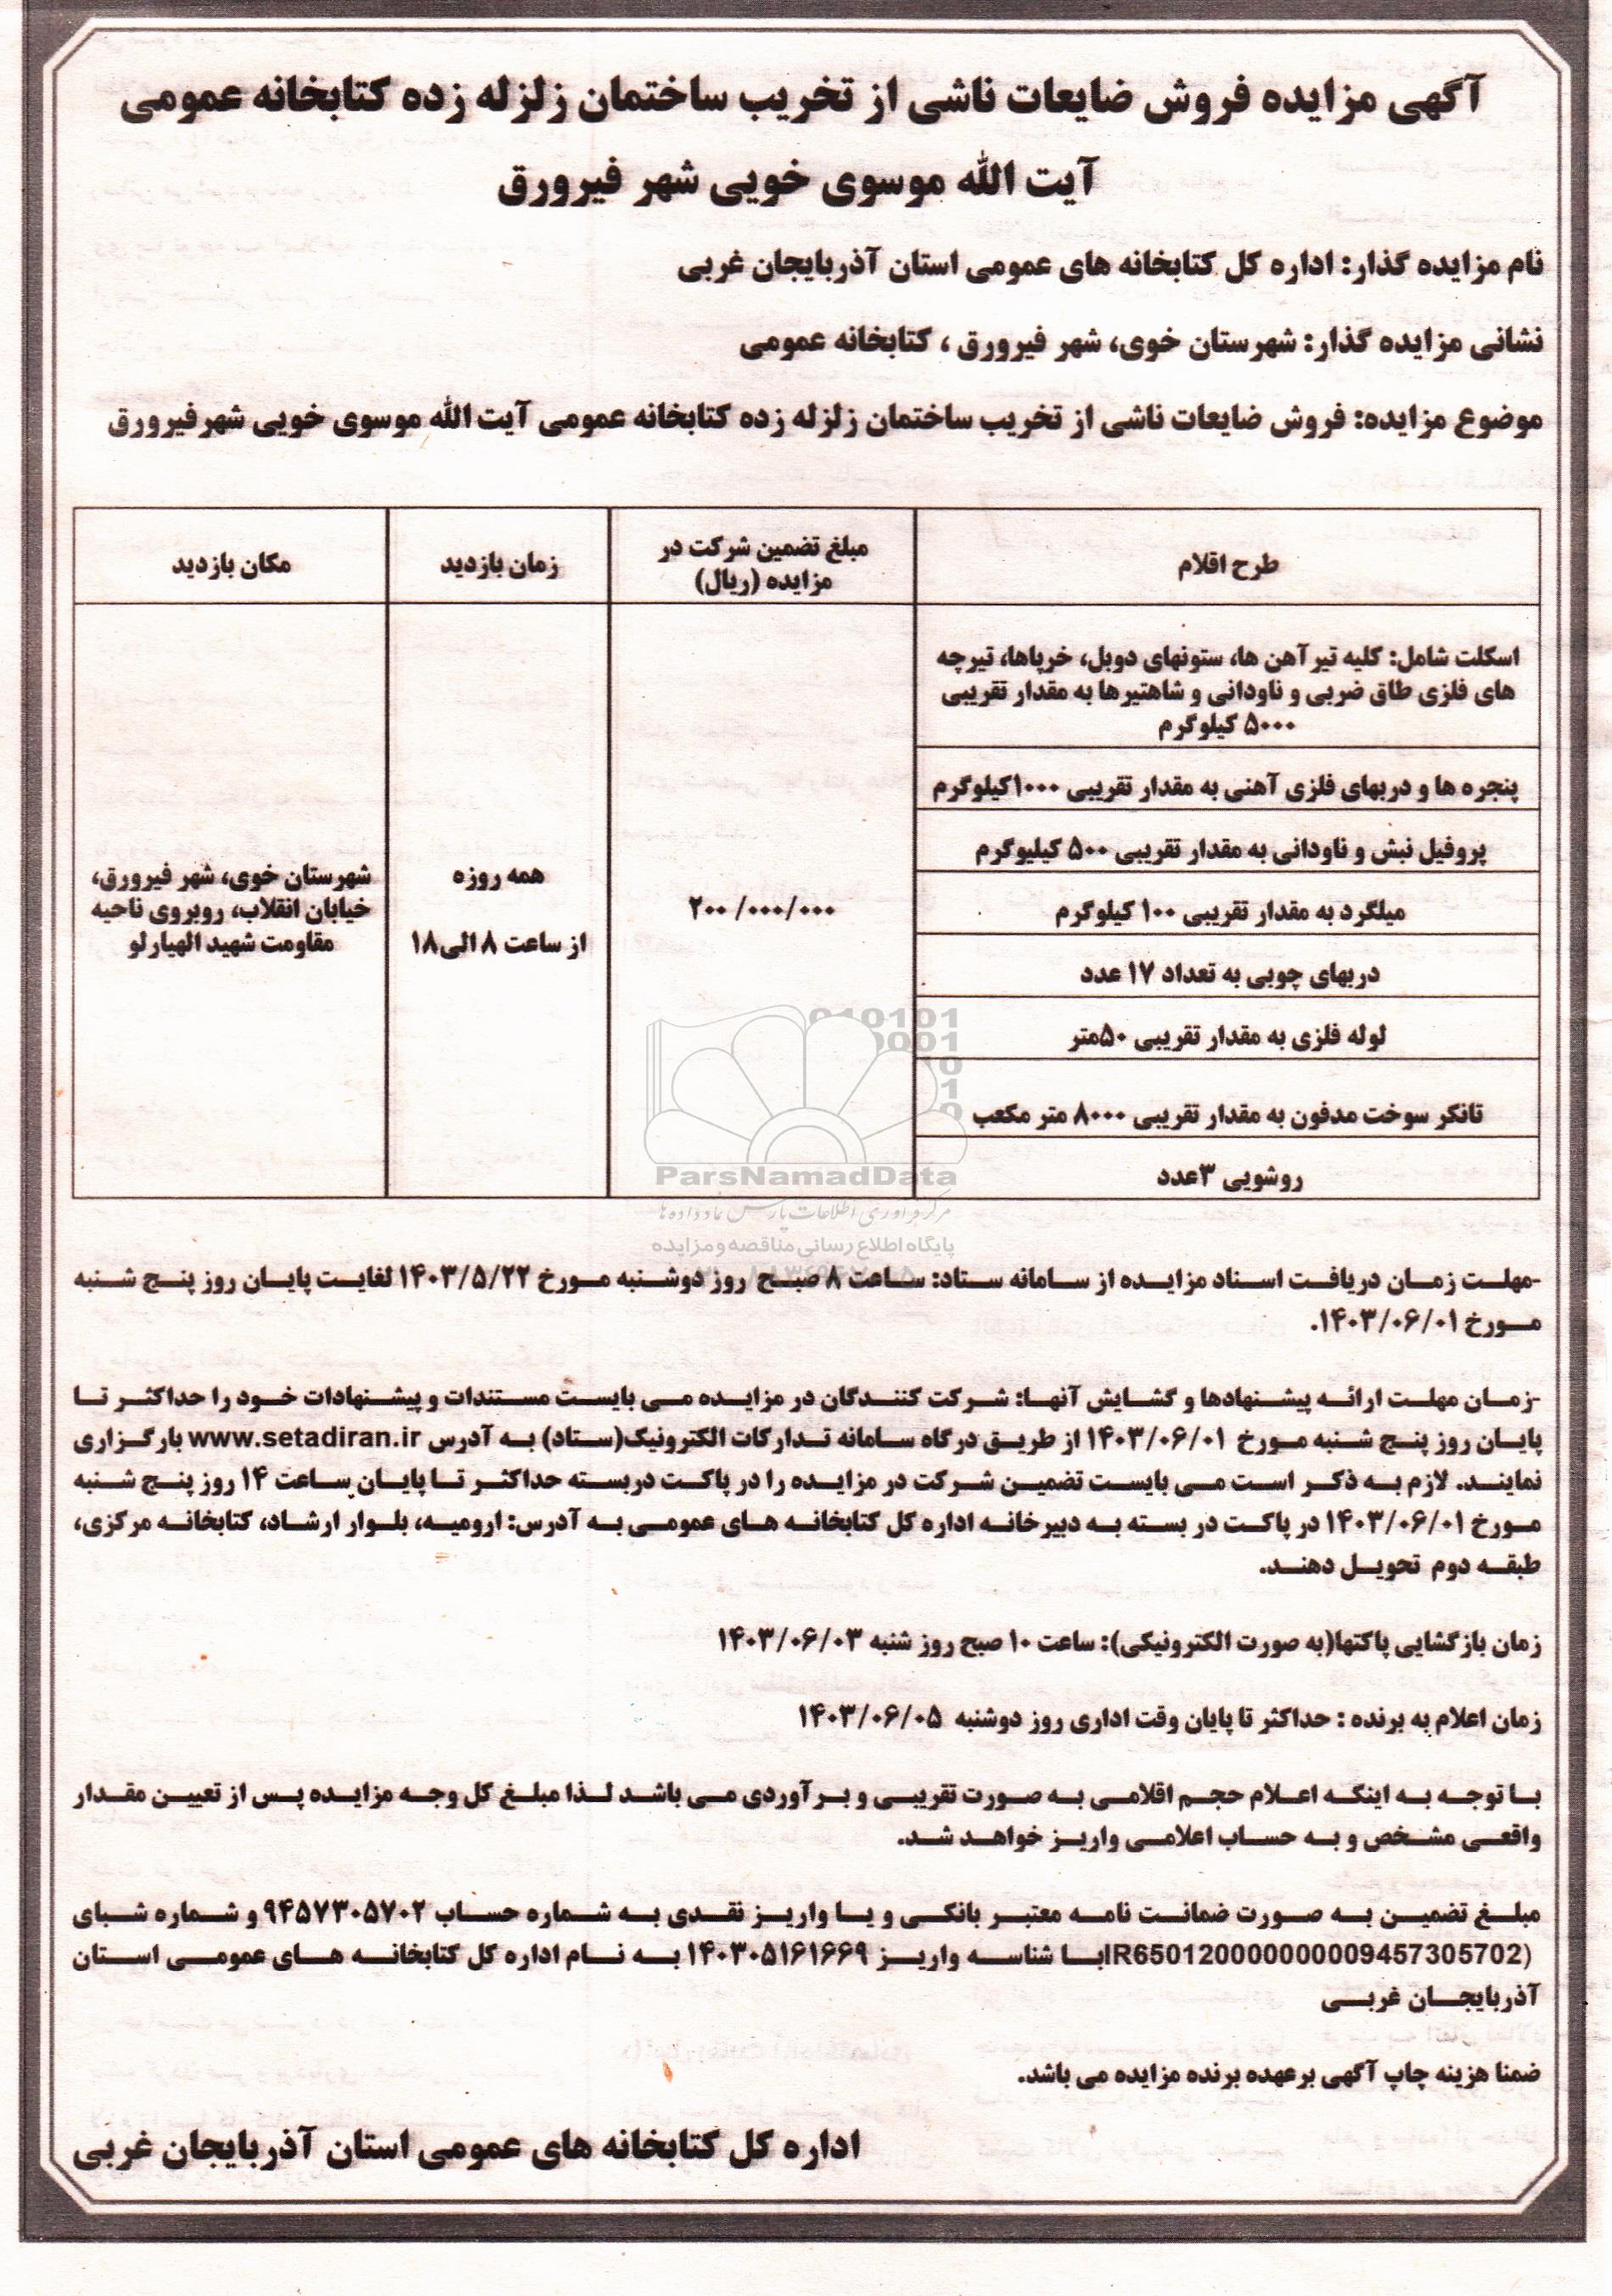 آگهی مزایده فروش ضایعات ناشی از تخریب ساختمان زلزله زده کتابخانه عمومی
آیت الله موسوی خویی شهر فیرورق
نام مزایده گذار: اداره کل کتابخانه های عمومی استان آذربایجان غربی
نشانی مزایده گذار: شهرستان خوی، شهر فیرورق ، کتابخانه عمومی
موضوع مزایده: فروش ضایعات ناشی از تخریب ساختمان زلزله زده کتابخانه عمومی آیت الله موسوی خویی شهرفیرورق
طرح اقلام
مبلغ تضمین شرکت در
مزایده (ریال)
زمان بازدید
مکان بازدید
اسکلت شامل: کلیه تیرآهن ها، ستونهای دوبل، خرپاها، تیرچه
های فلزی طاق ضربی و ناودانی و شاهتیرها به مقدار تقریبی
۵۰۰۰ کیلوگرم
پنجره ها و دربهای فلزی آهنی به مقدار تقریبی ۱۰۰۰کیلوگرم
پروفیل نبش و ناودانی به مقدار تقریبی ۵۰۰ کیلیوگرم
میلگرد به مقدار تقریبی ۱۰۰ کیلوگرم
دربهای چوبی به تعداد ۱۷ عدد
لوله فلزی به مقدار تقریبی ۵۰متر
تانکر سوخت مدفون به مقدار تقریبی ۸۰۰۰ متر مکعب
روشویی ۳عدد
۲۰۰/۰۰۰/۰۰۰
همه روزه
از ساعت ۸ الی۱۸
شهرستان خوی، شهر فیرورق،
خیابان انقلاب، روبروی ناحیه
مقاومت شهید الهیارلو
ParsNamadData
مرکز فرآوری اطلاعات پارس نماد داده ها
پایگاه اطلاع رسانی مناقصه و مزایده
-مهلت زمان دریافت اسناد مزایده از سامانه ستاد: ساعت ۸ صبح روز دوشنبه مورخ ۱۴۰۳/۵/۲۲ لغایت پایان روز پنج شنبه
مورخ ۱۴۰۳/۰۶/۰۱.
-زمان مهلت ارائه پیشنهادها و گشایش آنها: شرکت کنندگان در مزایده می بایست مستندات و پیشنهادات خود را حداکثر تا
پایان روز پنج شنبه مورخ ۱۴۰۳/۰۶/۰۱ از طریق درگاه سامانه تدارکات الکترونیک(ستاد) به آدرس www.setadiran.ir بارگزاری
نمایند. لازم به ذکر است می بایست تضمین شرکت در مزایده را در پاکت دربسته حداکثر تا پایان ساعت ۱۴ روز پنج شنبه
مورخ ۱۴۰۳/۰۶/۰۱ در پاکت در بسته به دبیرخانه اداره کل کتابخانه های عمومی به آدرس: ارومیه، بلوار ارشاد، کتابخانه مرکزی،
طبقه دوم تحویل دهند.
زمان بازگشایی پاکتها(به صورت الکترونیکی): ساعت ۱۰ صبح روز شنبه ۱۴۰۳/۰۶/۰۳
زمان اعلام به برنده : حداکثر تا پایان وقت اداری روز دوشنبه ۱۴۰۳/۰۶/۰۵
با توجه به اینکه اعلام حجم اقلامی به صورت تقریبی و برآوردی می باشد لذا مبلغ کل وجه مزایده پس از تعیین مقدار
واقعی مشخص و به حساب اعلامی واریز خواهد شد.
مبلغ تضمین به صورت ضمانت نامه معتبر بانکی و یا واریز نقدی به شماره حساب ۹۴۵۷۳۰۵۷۰۲ و شماره شبای
(IR650120000000009457305702با شناسه واریز ۱۴۰۳۰۵۱۶۱۶۶۹ به نام اداره کل کتابخانه های عمومی استان
آذربایجان غربی
ضمنا هزینه چاپ آگهی برعهده برنده مزایده می باشد.
اداره کل کتابخانه های عمومی استان آذربایجان غربی